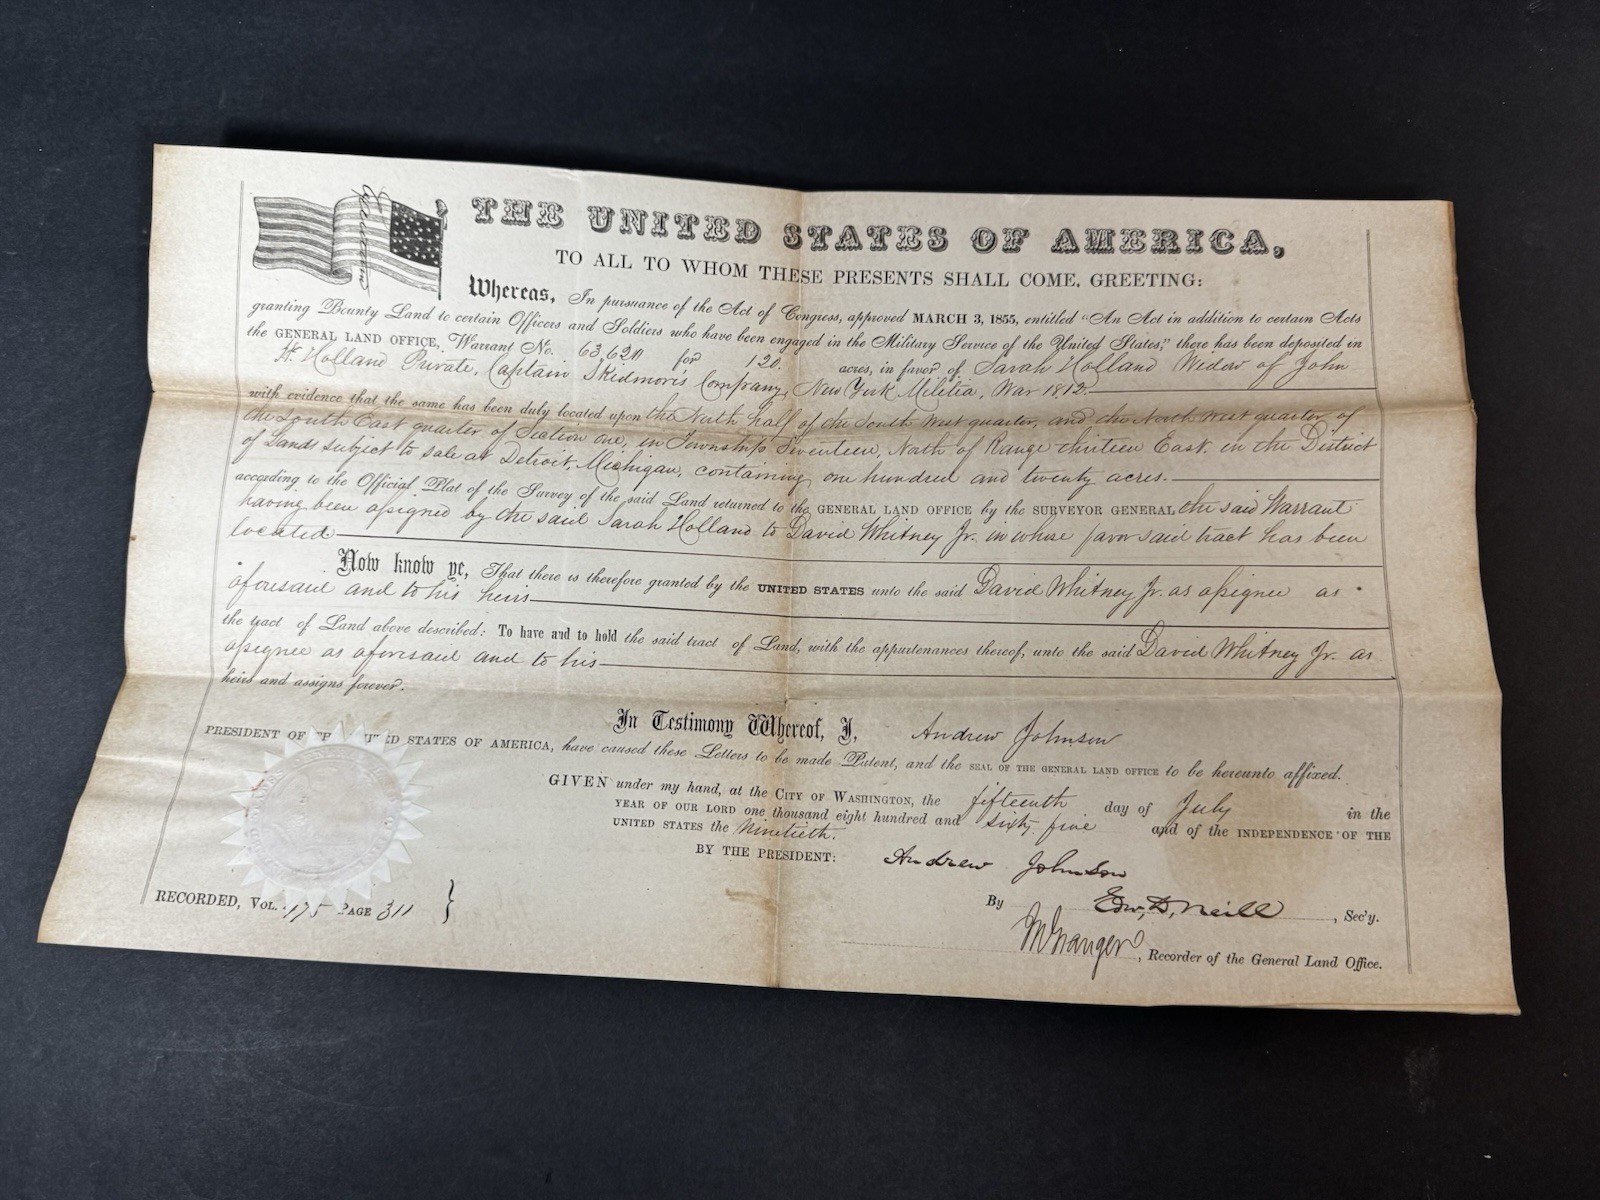 THE UNITED STATES OF AMERICA,
TO ALL TO WHOM THESE PRESENTS SHALL COME, GREETING:
Whereas, In pursuance of the Act of Congress, approved MARCH 3, 1855, entitled "An Act in addition to certain Acts
granting Bounty Land to certain Officers and Soldiers who have been engaged in the Military Service of the United States," there has been deposited in
the GENERAL LAND OFFICE, Warrant No. 63,620 for 120 acres, in favor of Sarah Holland Widow of John
H. Holland Private, Captain Skidmore's Company, New York Militia, War 1812
with evidence that the same has been duly located upon the North half of the South West quarter, and the North West quarter of
the South East quarter of Section one, in Township Seventeen, North of Range thirteen East, in the District
of Lands subject to sale at Detroit, Michigan, containing one hundred and twenty acres.
according to the Official Plat of the Survey of the said Land returned to the GENERAL LAND OFFICE by the SURVEYOR GENERAL the said Warrant
having been assigned by the said Sarah Holland to David Whitney Jr. in whose favor said tract has been
located
Now know ye, That there is therefore granted by the UNITED STATES unto the said David Whitney Jr. as assignee as
aforesaid and to his heirs
the tract of Land above described: To have and to hold the said tract of Land, with the appurtenances thereof, unto the said David Whitney Jr. as
assignee as aforesaid and to his
heirs and assigns forever.
In Testimony Whereof, I, Andrew Johnson
PRESIDENT OF THE UNITED STATES OF AMERICA, have caused these Letters to be made Patent, and the SEAL OF THE GENERAL LAND OFFICE to be hereunto affixed.
GIVEN under my hand, at the CITY OF WASHINGTON, the fifteenth day of July in the
YEAR OF OUR LORD one thousand eight hundred and sixty five and of the INDEPENDENCE OF THE
UNITED STATES the Ninetieth.
BY THE PRESIDENT: Andrew Johnson
By Edw. D. Neill, Sec'y.
RECORDED, VOL. 175 PAGE 311 }
, Recorder of the General Land Office.